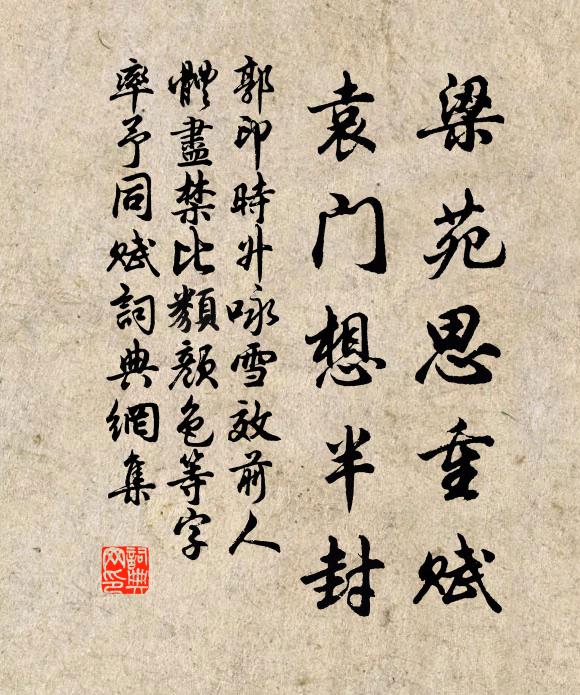 梁苑思重賦
袁門想半封
郭印時升咏雪效前人
體盡禁比類顏色等字
率予同賦詞典網集
詞典網印